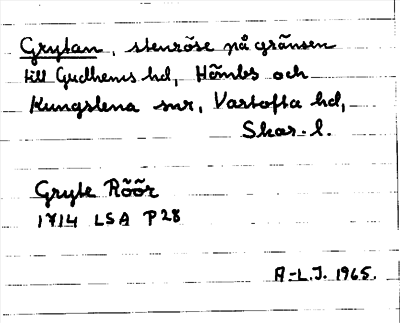 Grytan, stenröse på gränsen
till Gudhems hd, Hömbs och
Kungslena snr, Vartofta hd,
Skar. l.
Gryte Röör
1714 LSA P28
A-L.J. 1965.